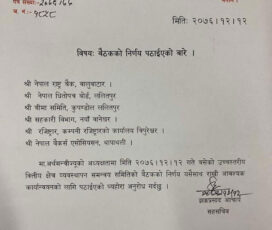 पत्र संख्या:-
च. नं.:-
मितिः २०७६।१२।१२
विषयः बैठकको निर्णय पठाईएको बारे ।
श्री नेपाल राष्ट्र बैंक, बालुवाटार ।
श्री नेपाल धितोपत्र बोर्ड, ललितपुर
श्री बीमा समिति, कुपण्डोल ललितपुर
श्री सहकारी विभाग, नयाँ वानेश्वर ।
श्री रजिष्ट्रार, कम्पनी रजिष्ट्रारको कार्यालय त्रिपुरेश्वर ।
श्री नेपाल बैंकर्स एसोसियसन, थापाथली ।
मा.अर्थमन्त्रीज्यूको अध्यक्षतामा मिति २०७६।१२।१२ गते बसेको उच्चस्तरीय
वित्तीय क्षेत्र व्यवस्थापन समन्वय समितिको बैठकको निर्णय यसैसाथ राखी आवश्यक
कार्यान्वयनको लागि पठाईएको व्यहोरा अनुरोध गर्दछु ।
झक्कप्रसाद आचार्य
सहसचिव